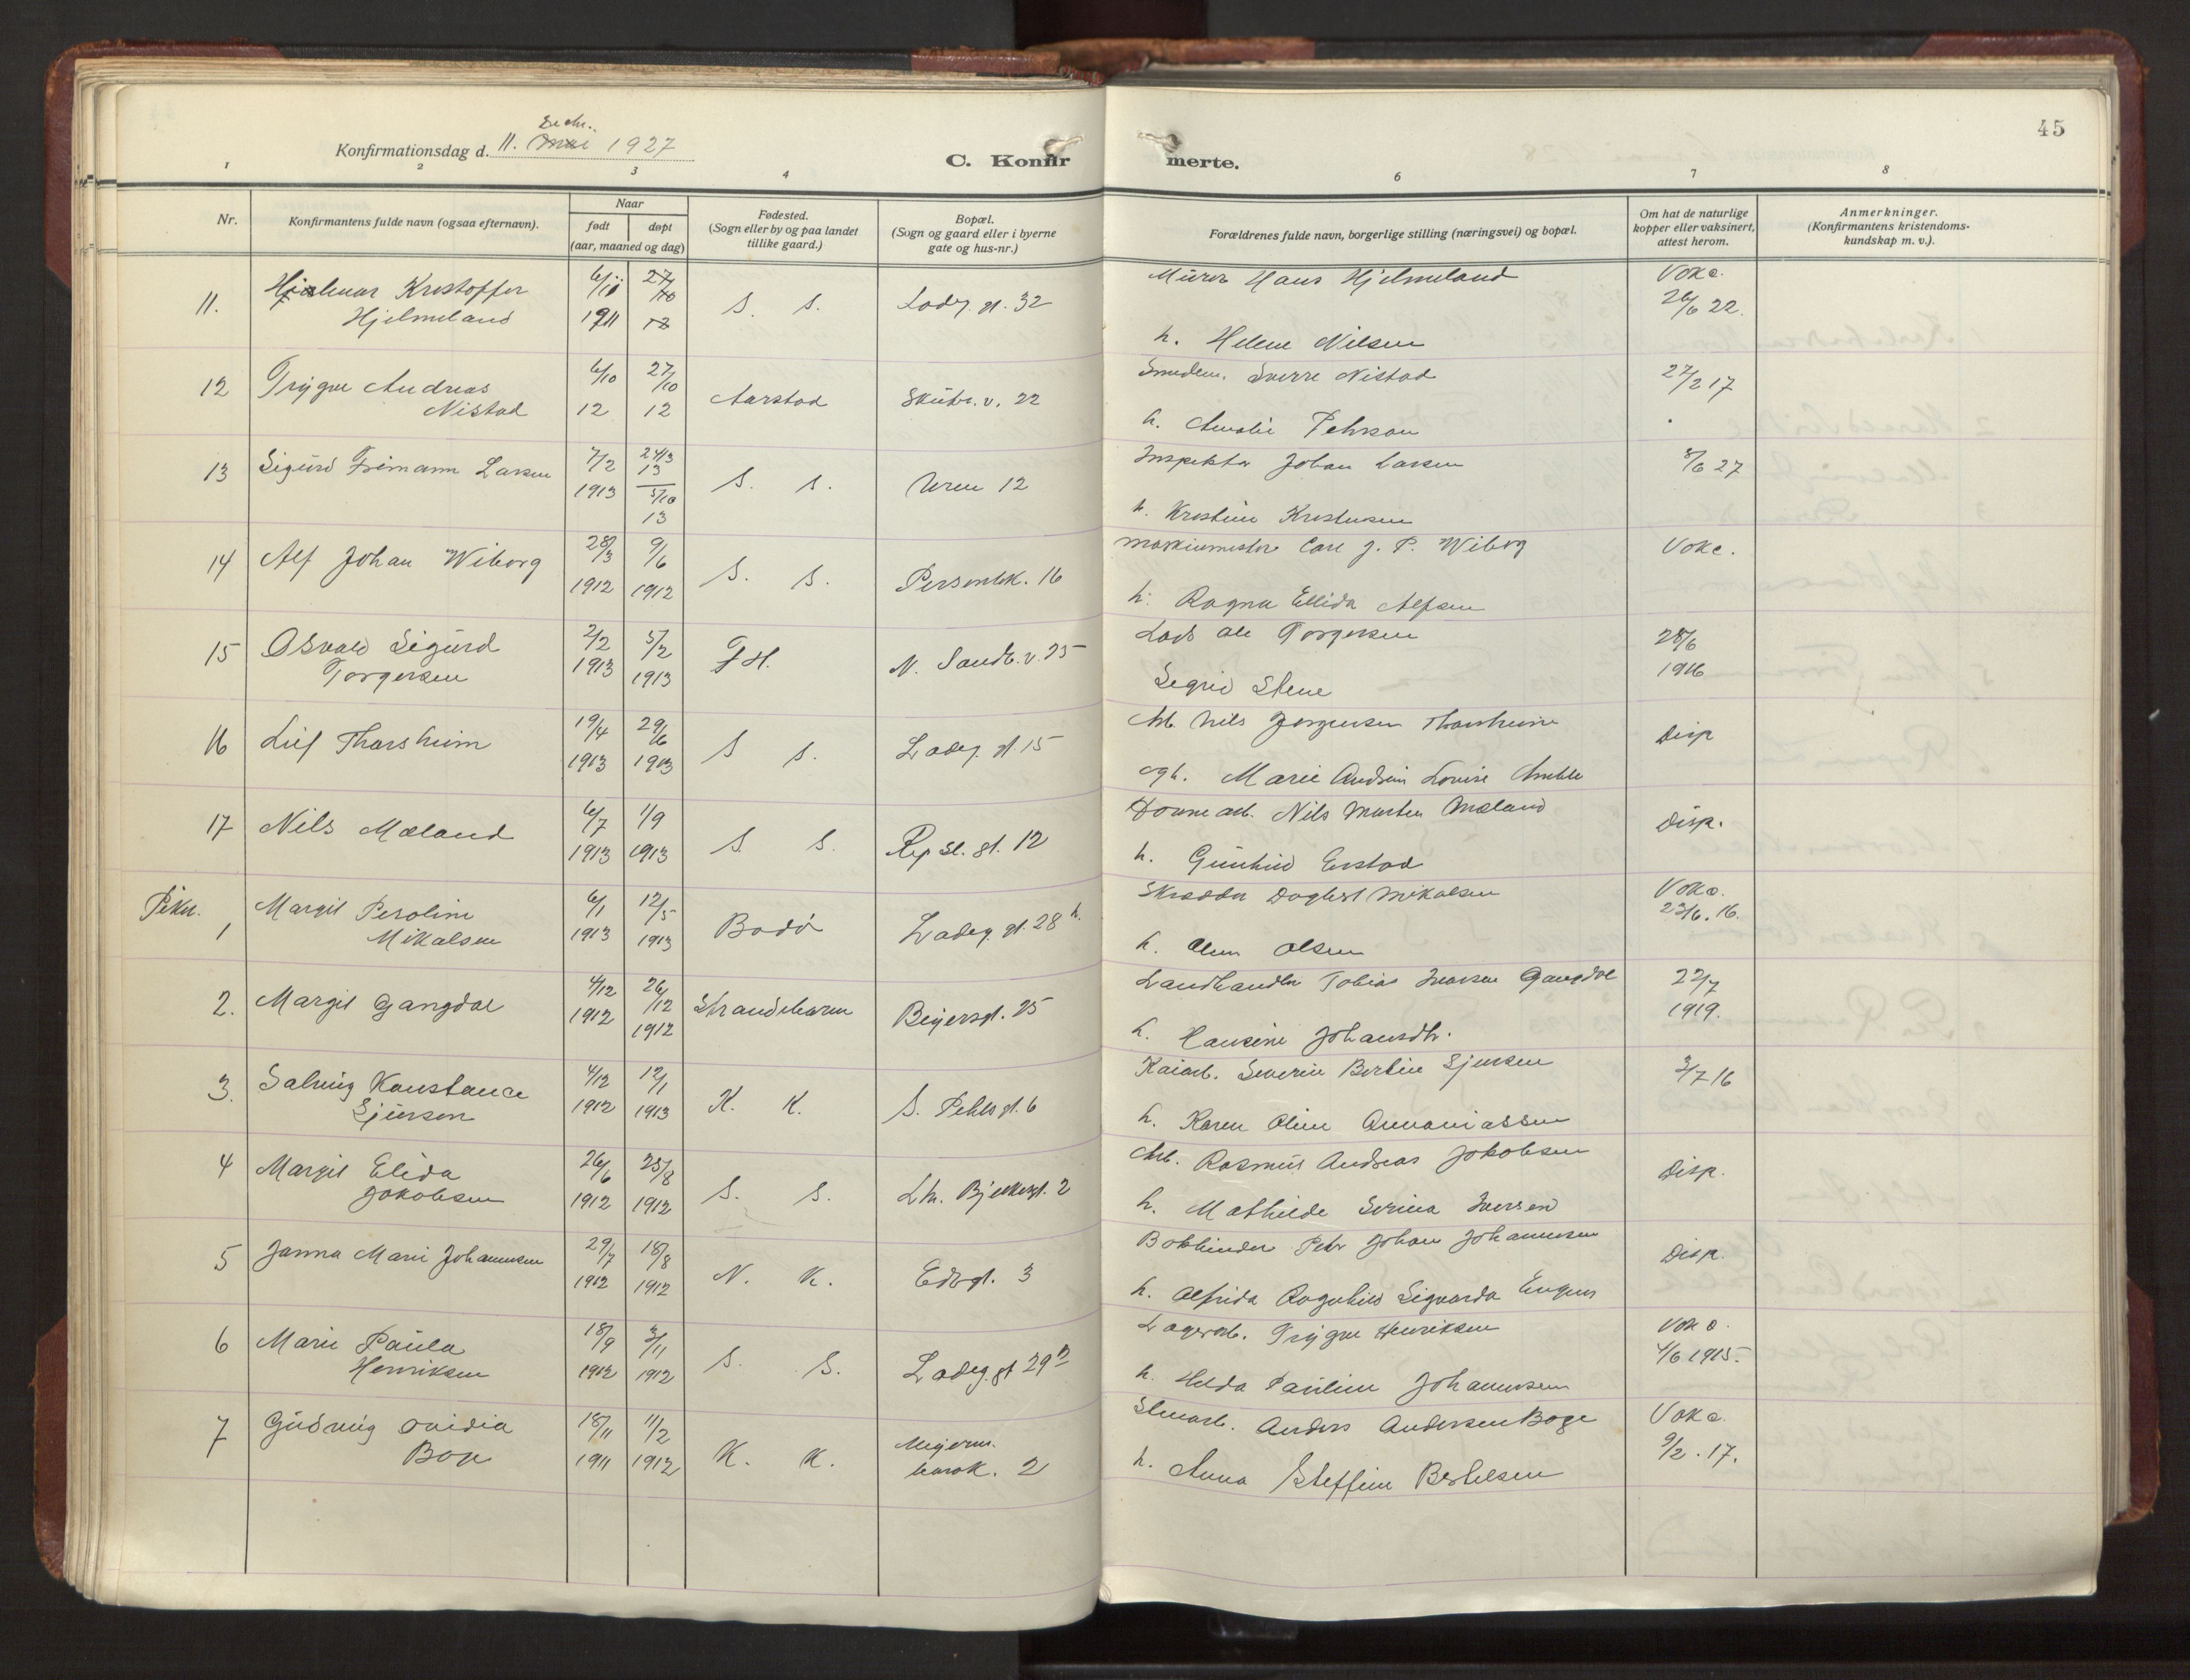 45
Dechr.
Konfirmationsdag d. 11. Mai 1927
C. Konfir merte.
1 2 3 4 6 7 8
Nr.
Konfirmantens fulde navn (ogsaa efternavn).
Naar
født døpt
(aar, maaned og dag)
Fødested.
(Sogn eller by og paa landet
tillike gaard.)
Bopæl.
(Sogn og gaard eller i byerne
gate og hus-nr.)
Forældrenes fulde navn, borgerlige stilling (næringsvei) og bopæl.
Om hat de naturlige
kopper eller vaksinert,
attest herom.
Anmerkninger.
(Konfirmantens kristendoms-
kundskap m. v.).
11. Hjalmar Kristoffer
Hjelmeland
1911
S. S. Ladeg. gt. 32
Murer Hans Hjelmeland
h. Helene Nilsen
Vokc.
26/6 22.
12 Trygve Andreas
Nistad
6/10 12
27/10 12
Aarstad Skutv. v. 22
Smedem. Sverre Nistad
h. Amalie Pehrson
27/2 17
13 Sigurd Freimann Larsen
7/2 1913
24/3 13
5/10 13
S. S. Uren 12
Inspektør Johan Larsen
h. Kristine Kristensen
8/6 27
14 Alf Johan Wiborg
28/3 1912
9/6 1912
S. S. Persenbk. 16
Maskinmester Carl J. P. Wiborg
h. Ragna Ellida Alfsen
Vokc.
15 Osvald Sigurd
Torgersen
2/2 1913
5/2 1913
F H. N. Sandv. v. 25
Lods Ole Torgersen
Sigrid Stene
28/6
1916
16 Leif Tharsheim
19/4 1913
29/6 1913
S S. Ladeg. gt. 15
Arb. Nils Jørgensen Tharsheim
og h. Marie Andrine Lovise Amble
Disp
17 Nils Mæland
6/7 1913
1/9 1913
S. S. Rep sl. gt. 12
Nils Morten Mæland
h. Gunhild Erstad
Disp.
Piker.
1 Margit Peroline
Mikalsen
6/1 1913
12/5 1913
Bodø Ladeg. gt. 28 b.
Skrædder Dagbert Mikalsen
h. Olsen
Vokc.
23/6. 16.
2. Margit Gangdal
4/12 1912
26/12 1912
Strandebarm Beyersgt. 25
Landhandler Tobias Ivarsen Gangdal
h. Hansine Johansdtr.
22/7
1919.
3. Solveig Konstance
Sjursen
4/12 1912
12/1 1913
K. K. S. Pehlsgt. 6
Kaiarb. Severin Bertin Sjursen
h. Karen Oline Annaniassen
3/7 16
4 Margit Elida
Jakobsen
26/6 1912
25/8 1912
S. S. Lh. Bjelkesgt. 2
Arb. Rasmus Andreas Jakobsen
h. Mathilde Serina Iversen
Disp.
5 Janna Marie Johannesen
29/7 1912
18/8 1912
N. K. Edv gt. 3
Bokbinder Petr Johan Johannesen
h. Alfrida Ragnhild Sigvarda
Disp.
6 Marie Paula
Henriksen
18/9 1912
3/11 1912
S. S. Ladeg. gt 29
Lagerarb. Trygve Henriksen
h. Helda Pauline Johannesen
Vokc.
4/6 1915.
7 Gudveig Ovidia
Boge
18/11 1911
11/2 1912
K. K. Meyerm.
barak. 2
Stenarb. Anders Andersen Boge
h. Anna Steffine Bertelsen
Vokc.
9/2. 17.